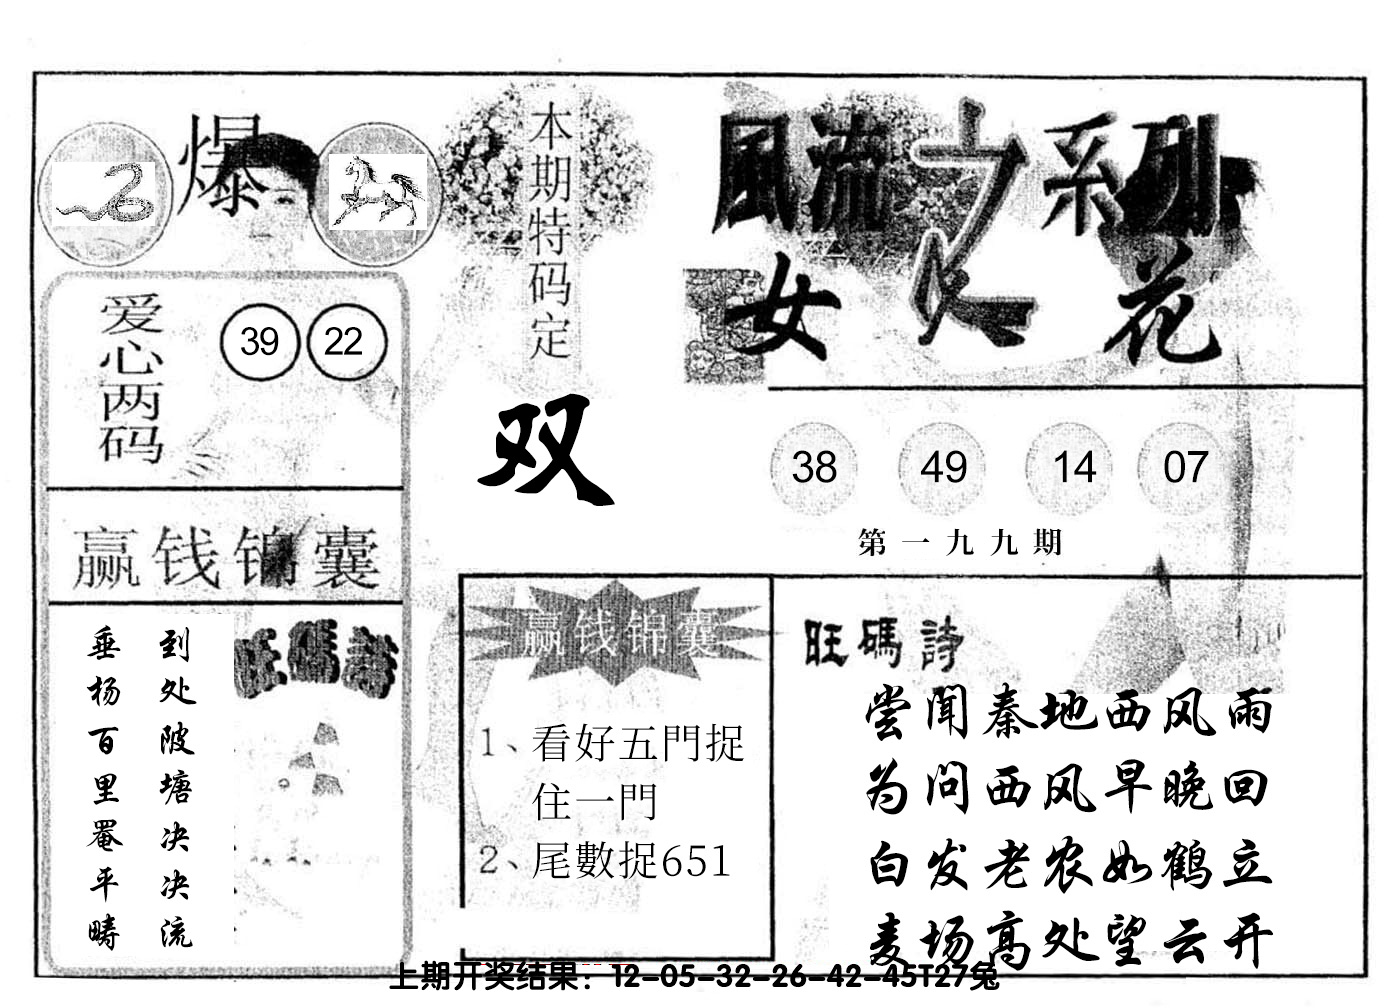 爆
本期特码定
双
風流之系列
女人花
爱心两码
39 22
38 49 14 07
第一九九期
赢钱锦囊
旺碼詩
到处陂塘决决流
垂杨百里罨平畴
赢钱锦囊
1、看好五門捉
住一門
2、尾數捉651
旺碼詩
尝闻秦地西风雨
为问西风早晚回
白发老农如鹤立
麦场高处望云开
上期开奖结果：12-05-32-26-42-45T27兔